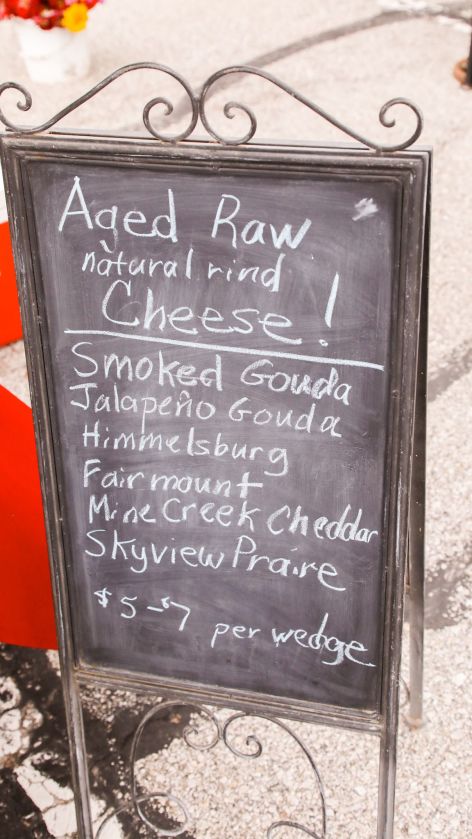 Aged Raw
natural rind
Cheese!
Smoked Gouda
Jalapeño Gouda
Himmelsburg
Fairmount
Mine Creek Cheddar
Skyview Praire
$5-$7 per wedge